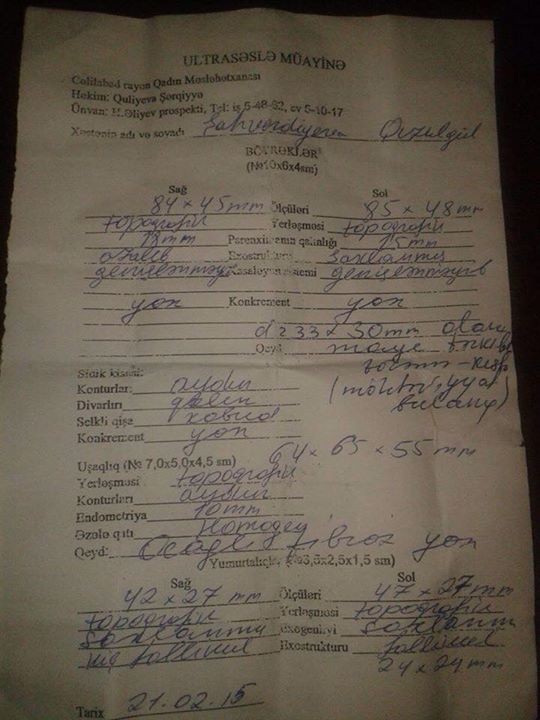 ULTRASƏSLƏ MÜAYİNƏ
Cəlilabad rayon Qadın Məsləhətxanası
Həkim: Quliyeva Şərqiyyə
Ünvan: H.Əliyev prospekti, Tel: iş 5-48-82, ev 5-10-17
Xəstənin adı və soyadı Qızılgül
BÖYRƏKLƏR
(№10x6x4sm)
Sağ Sol
84 x 45 mm Ölçüləri 85 x 48 mm
topoqrafik Yerləşməsi topoqrafik
13 mm Parenximanın qalınlığı 15 mm
azalıb Exostruktur saxlanmış
genişlənməyib Kasaləyən sistemi genişlənməyib
yox Konkrement yox
d = 33 x 30mm olan
Qeyd: maye
Sidik kisəsi:
Konturları aydın
(möhtəviyyat
Divarları
bulanıq)
Selikli qişa kobud
Konkrement yox
Uşaqlıq (№ 7,0x5,0x4,5 sm) 64 x 65 x 55 mm
Yerləşməsi topoqrafik
Konturları aydın
Endometriya 10mm
Əzələ qatı Homogen
Qeyd: Ocaqlı fibroz yox
Yumurtalıqlar (№3,5x2,5x1,5 sm)
Sağ Sol
42 x 27 mm Ölçüləri 47 x 27 mm
topoqrafik Yerləşməsi topoqrafik
saxlanmış exogenliyi saxlanmış
Exostrukturu
24 x 24 mm
Tarix 21.02.15